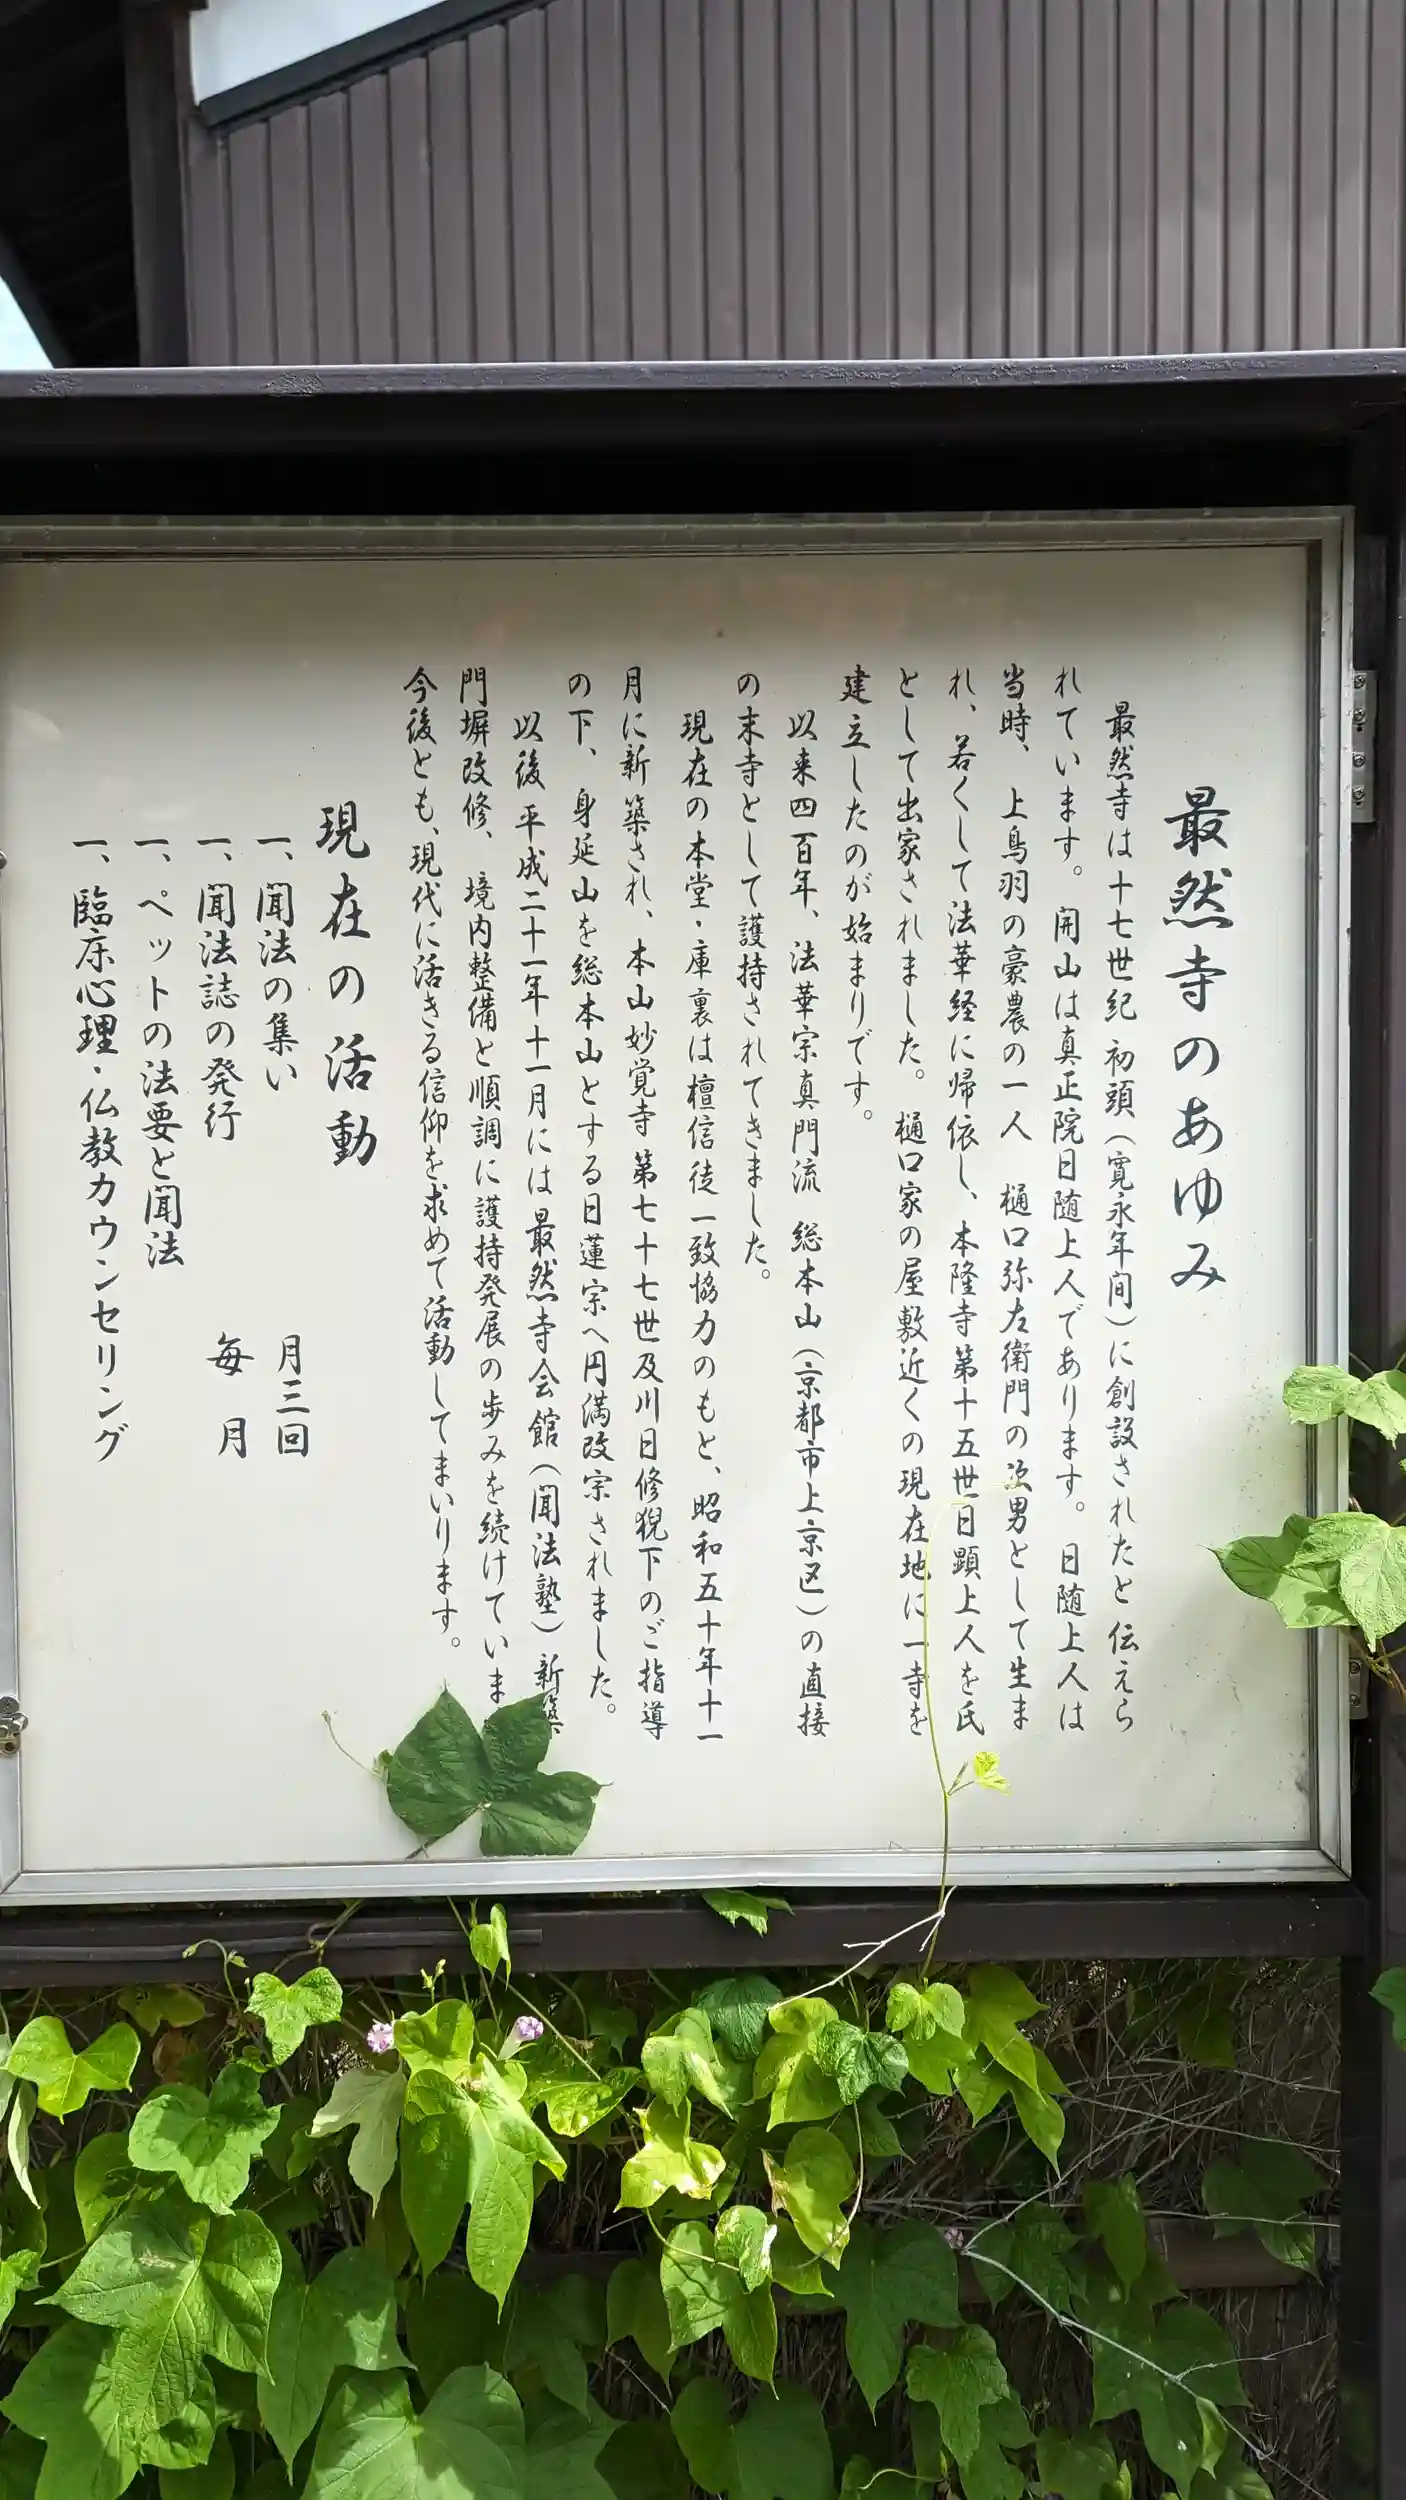 最然寺のあゆみ
最然寺は十七世紀初頭（寛永年間）に創設されたと伝えら
れています。開山は真正院日随上人であります。日随上人は
当時、上鳥羽の豪農の一人　樋口弥左衛門の次男として生ま
れ、若くして法華経に帰依し、本隆寺第十五世日顕上人を氏
として出家されました。樋口家の屋敷近くの現在地に一寺を
建立したのが始まりです。
以来四百年、法華宗真門流　総本山（京都市上京区）の直接
の末寺として護持されてきました。
現在の本堂・庫裏は檀信徒一致協力のもと、昭和五十年十一
月に新築され、本山妙覚寺第七十七世及川日修猊下のご指導
の下、身延山を総本山とする日蓮宗へ円満改宗されました。
以後平成二十一年十一月には最然寺会館（聞法塾）新築
門塀改修、境内整備と順調に護持発展の歩みを続けていま
今後とも、現代に活きる信仰を求めて活動してまいります。
現在の活動
一、聞法の集い　月三回
一、聞法誌の発行　毎月
一、ペットの法要と聞法
一、臨床心理・仏教カウンセリング